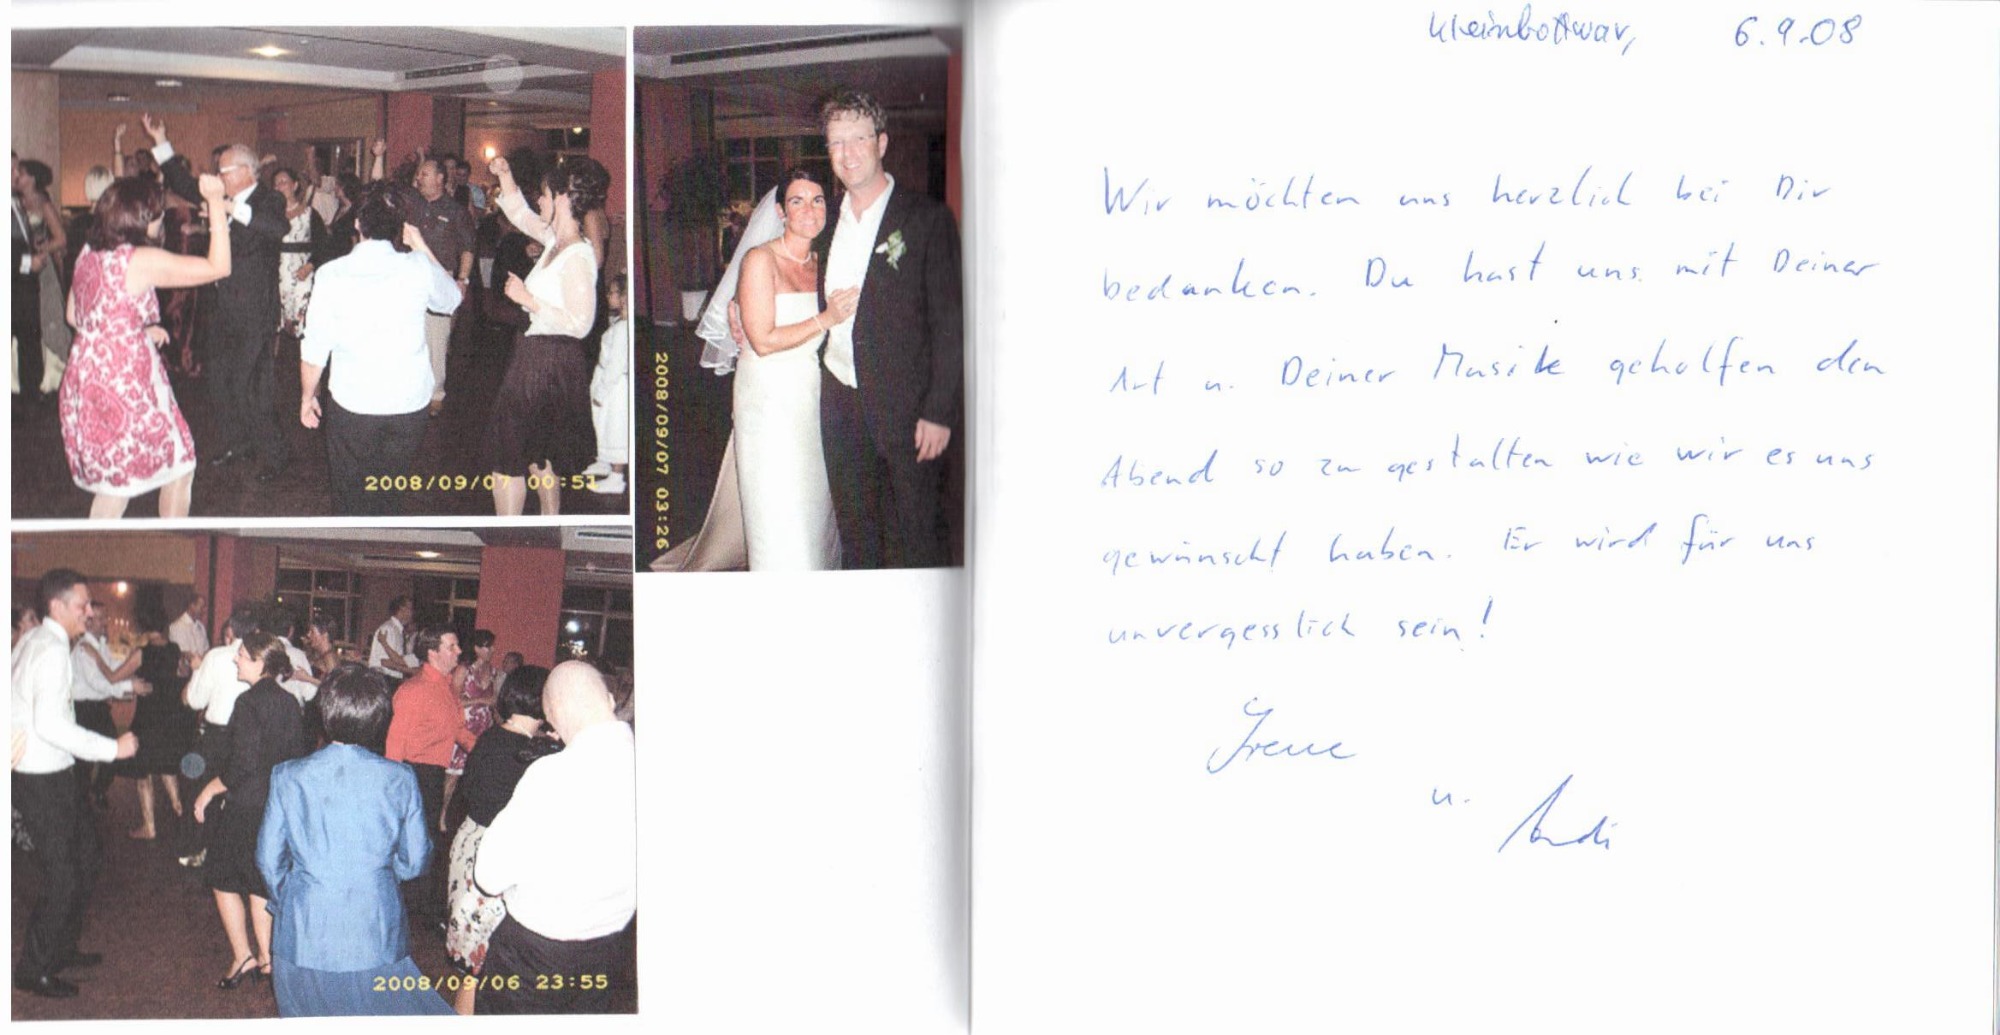 2008/09/07 00:51
2008/09/07 03:26
2008/09/06 23:55
Kleinbottwar, 6.9.08
Wir möchten uns herzlich bei Dir
bedanken. Du hast uns mit Deiner
Art u. Deiner Musik geholfen den
Abend so zu gestalten wie wir es uns
gewünscht haben. Er wird für uns
unvergesslich sein!
Irene
u. Andi